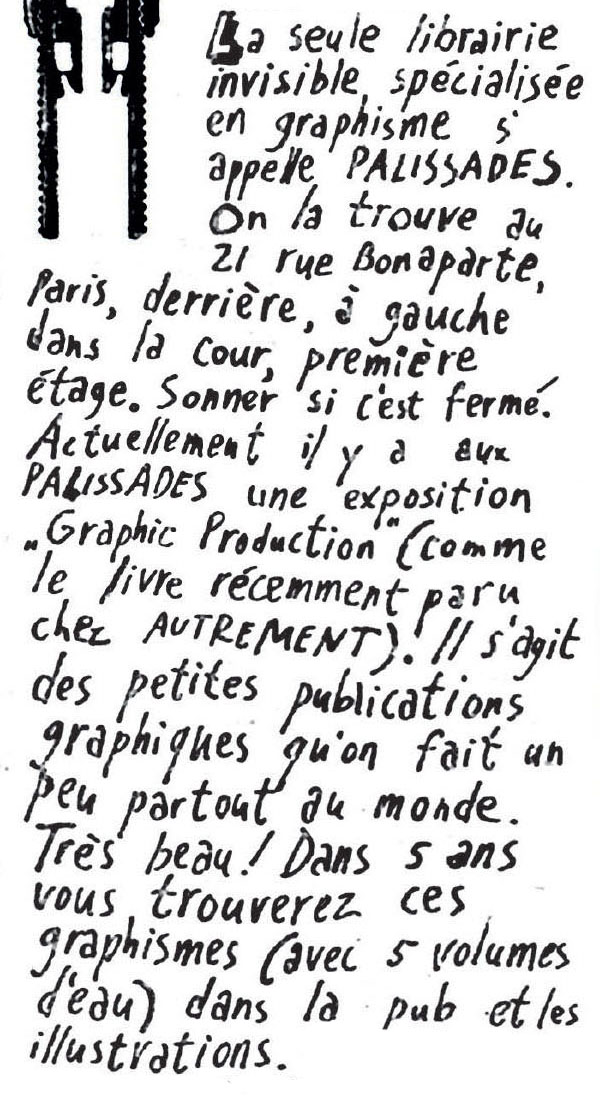 La seule librairie
invisible spécialisée
en graphisme s'
appelle PALISSADES.
On la trouve au
21 rue Bonaparte,
Paris, derrière, à gauche
dans la cour, première
étage. Sonner si c'est fermé.
Actuellement il y a aux
PALISSADES une exposition
„Graphic Production" (comme
le livre récemment paru
chez AUTREMENT)! Il s'agit
des petites publications
graphiques qu'on fait un
peu partout au monde.
Très beau! Dans 5 ans
vous trouverez ces
graphismes (avec 5 volumes
d'eau) dans la pub et les
illustrations.